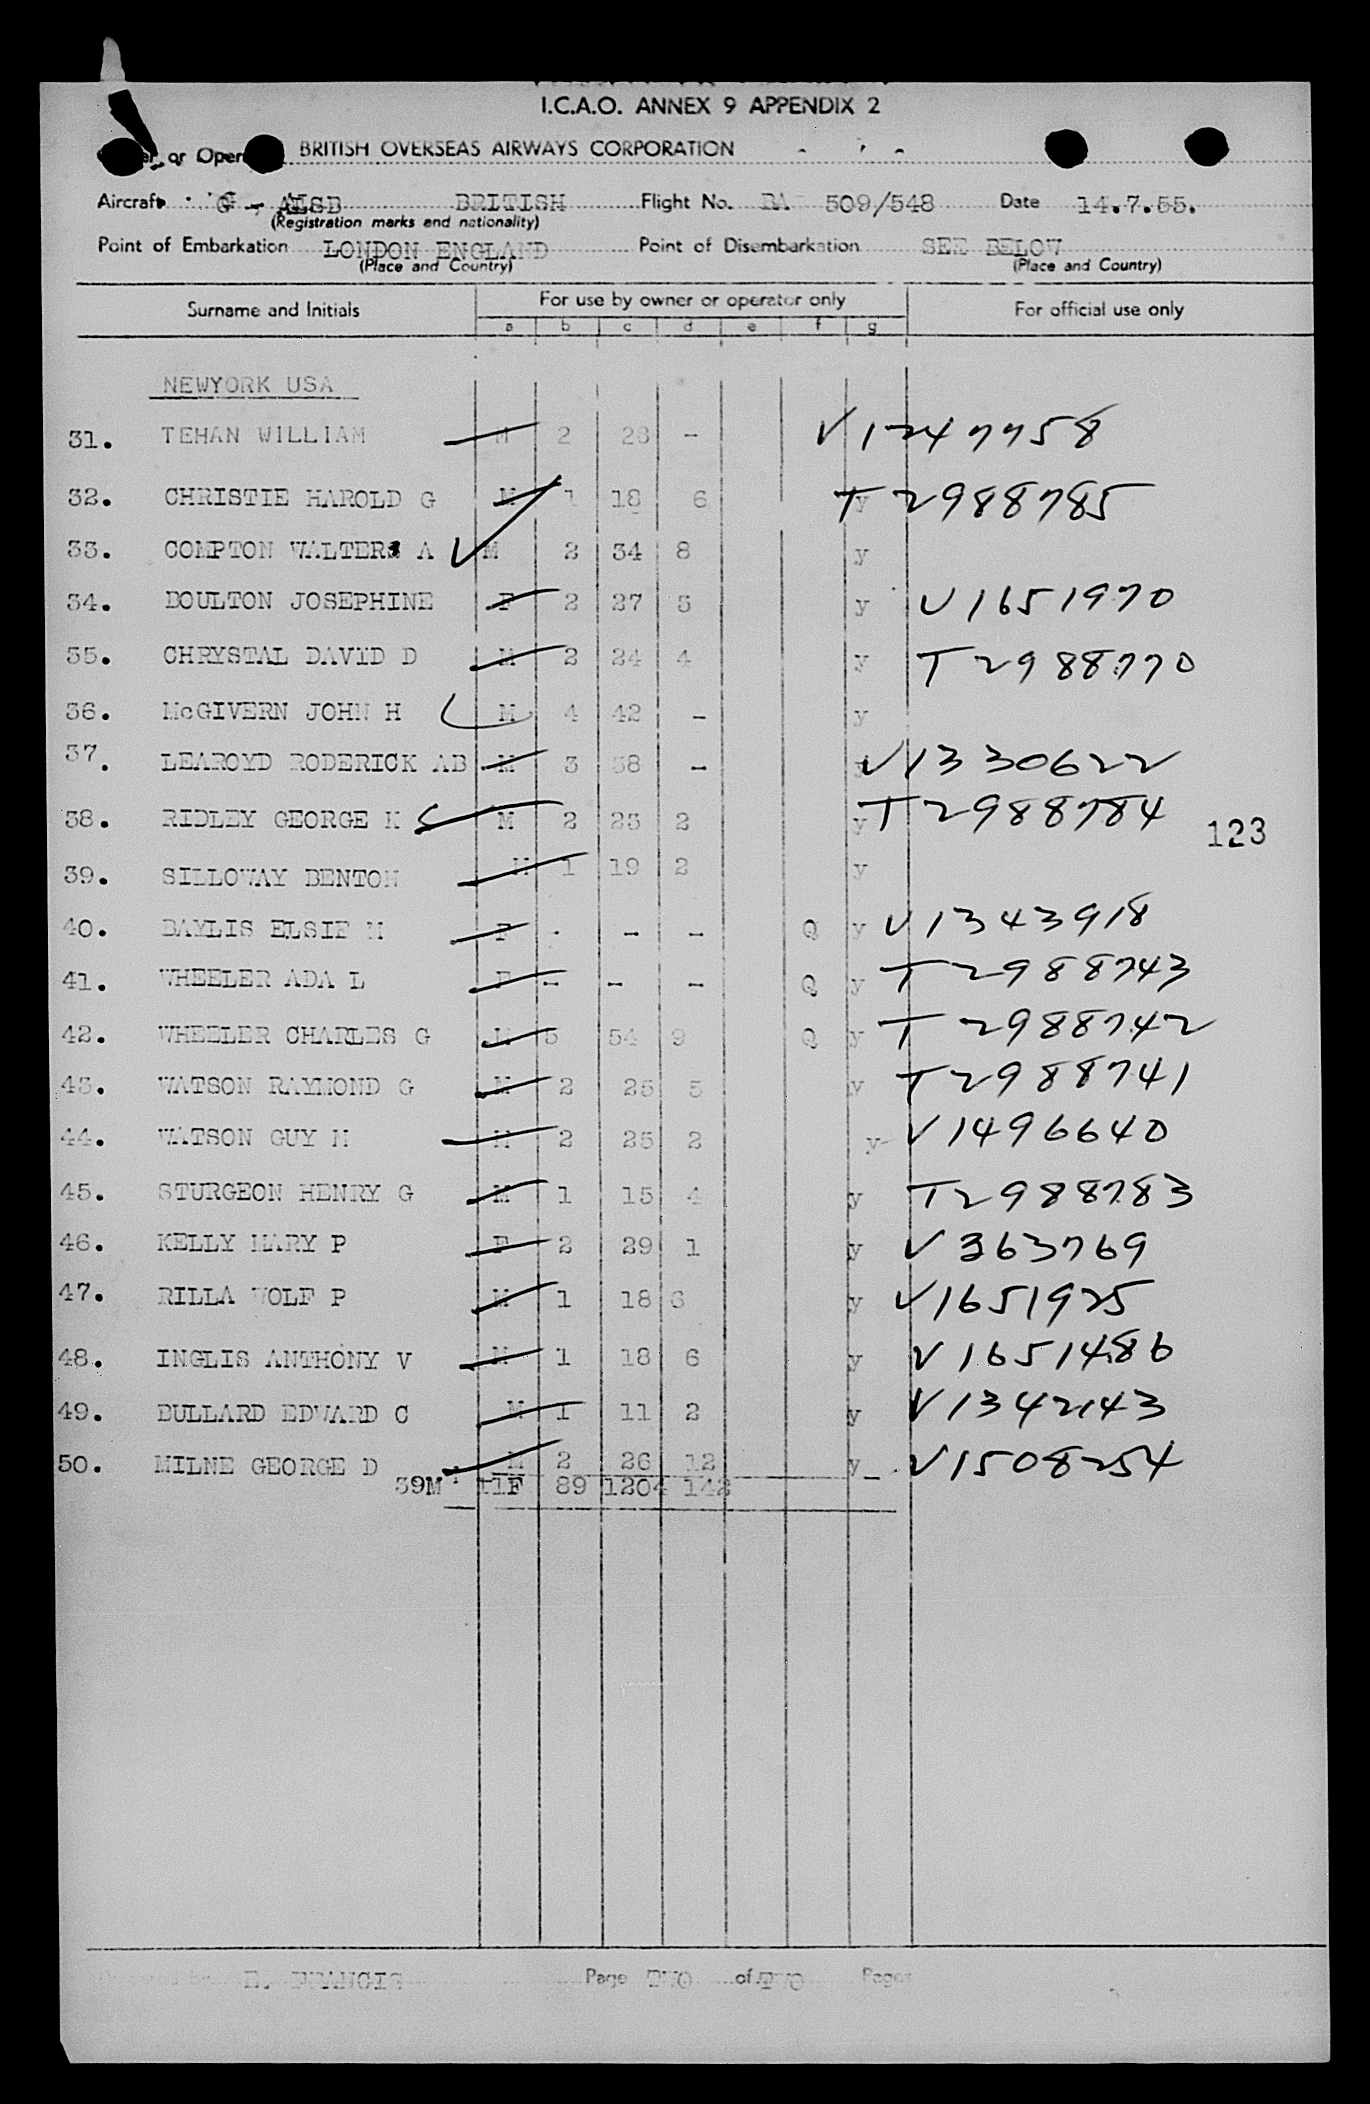 I.C.A.O. ANNEX 9 APPENDIX 2
or Oper BRITISH OVERSEAS AIRWAYS CORPORATION
Aircraft G - ALSB BRITISH Flight No. BA 509/548 Date 14.7.55.
(Registration marks and nationality)
Point of Embarkation LONDON ENGLAND Point of Disembarkation SEE BELOW
(Place and Country) (Place and Country)
Surname and Initials For use by owner or operator only For official use only
a b c d e f g
NEWYORK USA
31. TEHAN WILLIAM M 2 28 - V 1247758
32. CHRISTIE HAROLD G M 1 18 6 y T 2988785
33. COMPTON WALTER A M 2 34 8 y
34. BOULTON JOSEPHINE F 2 27 5 y V1651970
35. CHRYSTAL DAVID D M 2 24 4 y T2988770
36. McGIVERN JOHN H M 4 42 - y
37. LEAROYD RODERICK AB M 3 38 - V1330622
38. RIDLEY GEORGE K M 2 23 2 y T2988784
123
39. SILLOWAY BENTON M 1 19 2 y
40. BAYLIS ELSIE M F - - - Q y V1343918
41. WHEELER ADA L F - - - Q y T2988743
42. WHEELER CHARLES G M 5 54 9 Q y T2988742
43. WATSON RAYMOND G M 2 25 5 y T2988741
44. WATSON GUY M M 2 25 2 y V1496640
45. STURGEON HENRY G M 1 15 4 y T2988783
46. KELLY MARY P F 2 29 1 y V363769
47. RILLA WOLF P M 1 18 6 y V1651925
48. INGLIS ANTHONY V M 1 18 6 y V1651486
49. BULLARD EDWARD C M 1 11 2 y V1342143
50. MILNE GEORGE D M 2 26 12 y V1508254
39M 11F 89 1204 142
FRANCIS Page TWO of TWO Pages